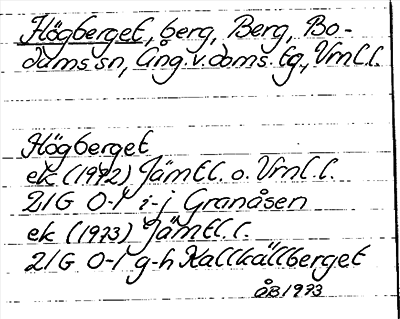 Högberget, berg, Berg, Bo-
dums sn, Ång.v.doms. tg, Vnl.l.
Högberget
ek (1972) Jämtl. o. Vnl.l.
21G 0-1 i-j Granåsen
ek (1973) Jämtl.l.
21G 0-1 g-h Kallkällberget
ÅB 1973